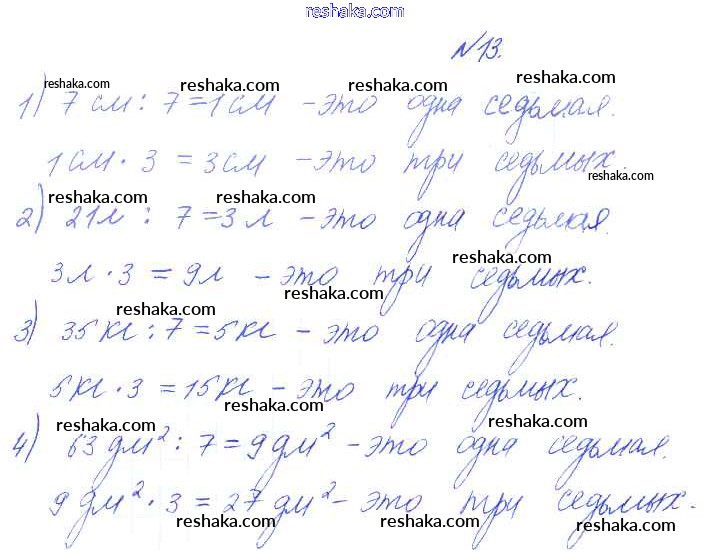 reshaka.com
№13.
reshaka.com reshaka.com reshaka.com
1) 7 см : 7 = 1 см - это одна седьмая.
1 см · 3 = 3 см - это три седьмых.
reshaka.com
reshaka.com reshaka.com
2) 21 л : 7 = 3 л - это одна седьмая.
reshaka.com
3 л · 3 = 9 л - это три седьмых.
reshaka.com reshaka.com
3) 35 кг : 7 = 5 кг - это одна седьмая.
reshaka.com
5 кг · 3 = 15 кг - это три седьмых.
reshaka.com
reshaka.com reshaka.com
4) 63 дм² : 7 = 9 дм² - это одна седьмая.
reshaka.com
9 дм² · 3 = 27 дм² - это три седьмых.
reshaka.com reshaka.com reshaka.com